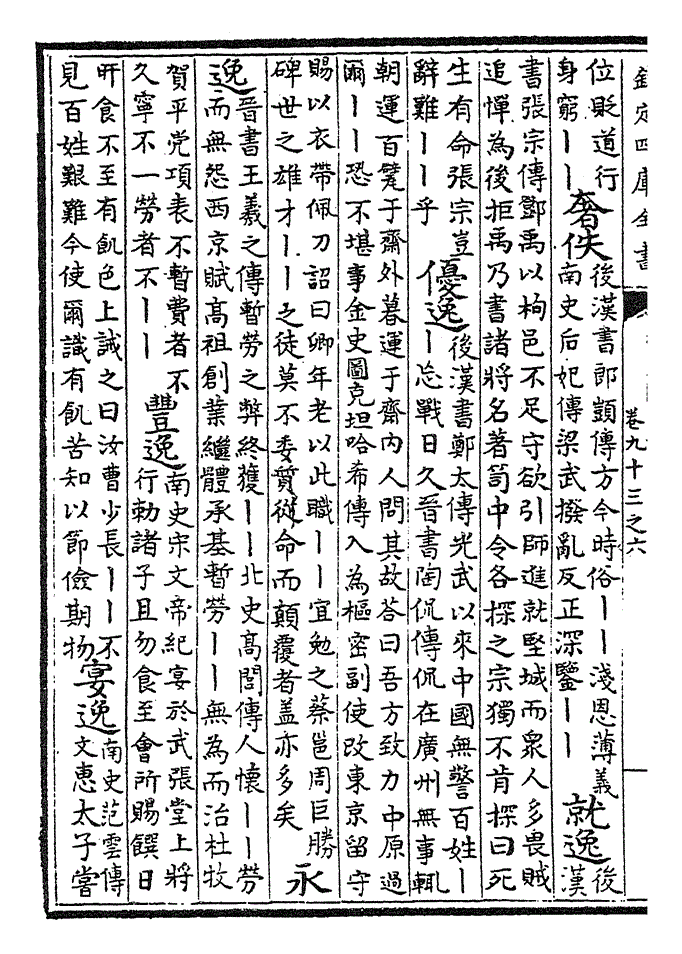 欽定四庫全書
卷九十三之六
位貶道行
身窮丨丨
奢佚
後漢書郎顗傳方今時俗丨丨淺恩薄義
南史后妃傳梁武撥亂反正深鑒丨丨
就逸
後
漢
書張宗傳鄧禹以栒邑不足守欲引師進就堅城而衆人多畏賊
追憚為後拒禹乃書諸將名著笥中令各探之宗獨不肯探曰死
生有命張宗豈
辭難丨丨乎
優逸
後漢書鄭太傳光武以來中國無警百姓丨
丨忘戰日久晉書陶侃傳侃在廣州無事輒
朝運百甓于齋外暮運于齋內人問其故答曰吾方致力中原過
爾丨丨恐不堪事金史圖克坦哈希傳入為樞密副使改東京留守
賜以衣帶佩刀詔曰卿年老以此職丨丨宜勉之蔡邕周巨勝
碑世之雄才丨丨之徒莫不委質從命而顛覆者盖亦多矣
永
逸
晉書王羲之傳暫勞之弊終獲丨丨北史高閭傳人懷丨丨勞
而無怨西京賦高祖創業繼體承基暫勞丨丨無為而治杜牧
賀平党項表不暫費者不
久寧不一勞者不丨丨
豐逸
南史宋文帝紀宴於武張堂上將
行勅諸子且勿食至會所賜饌日
旰食不至有飢色上誡之曰汝曹少長丨丨不
見百姓艱難今使爾識有飢苦知以節儉期物
宴逸
南史范雲傳
文惠太子嘗